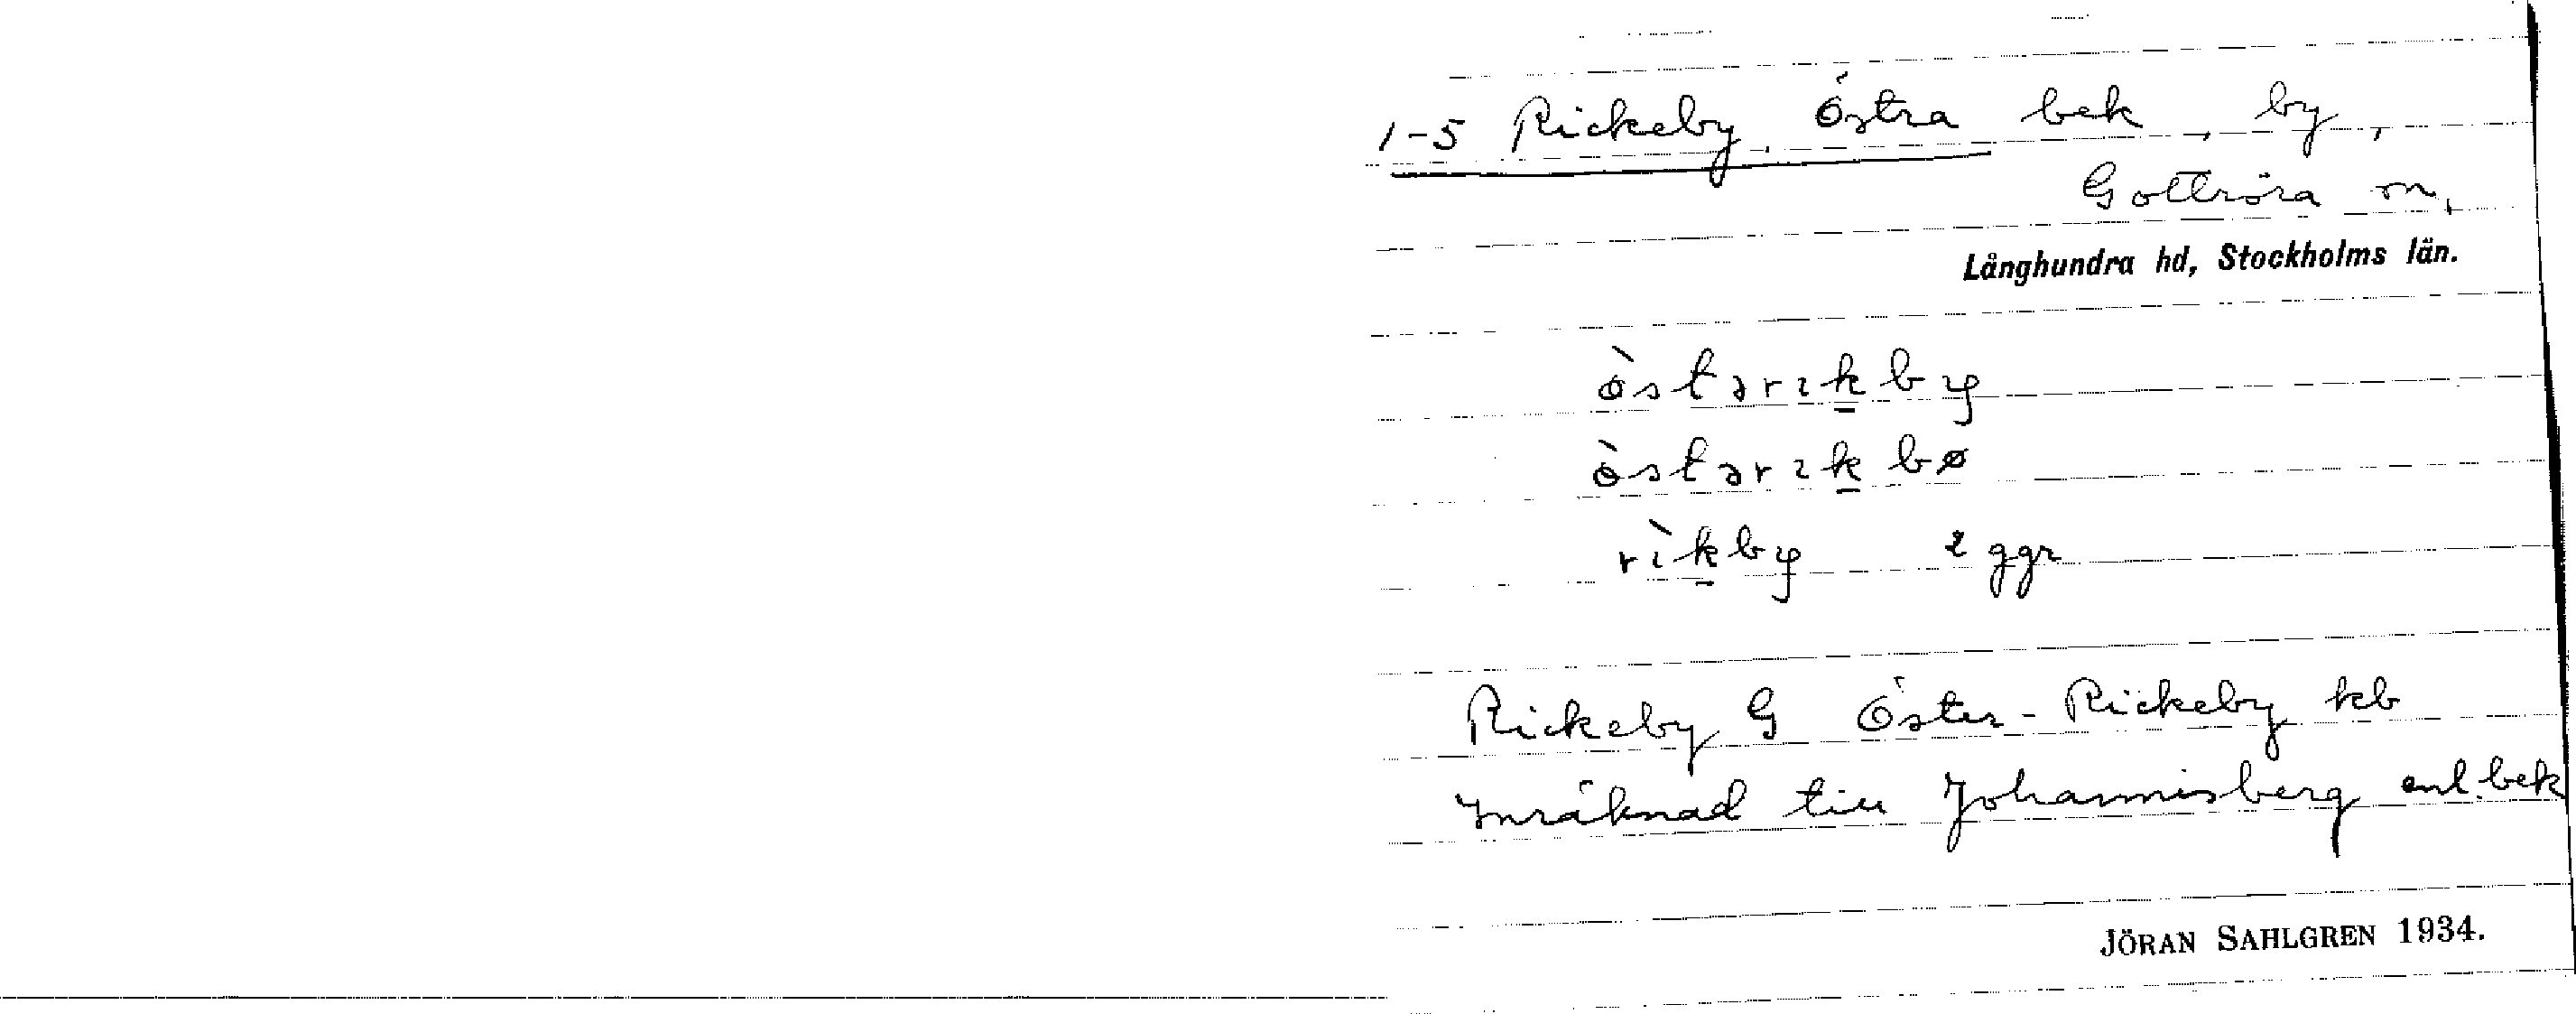 1-5 Rickeby, Östra bek, by,
Gottröra sn,
Långhundra hd, Stockholms län.
ò̀stərɪk̲by
ò̀stərɪk̲bø
rɪ̀k̲by 2 ggr
Rickeby G Öster-Rickeby kb
Inräknad till Johannisberg enl. bek
JÖRAN SAHLGREN 1934.